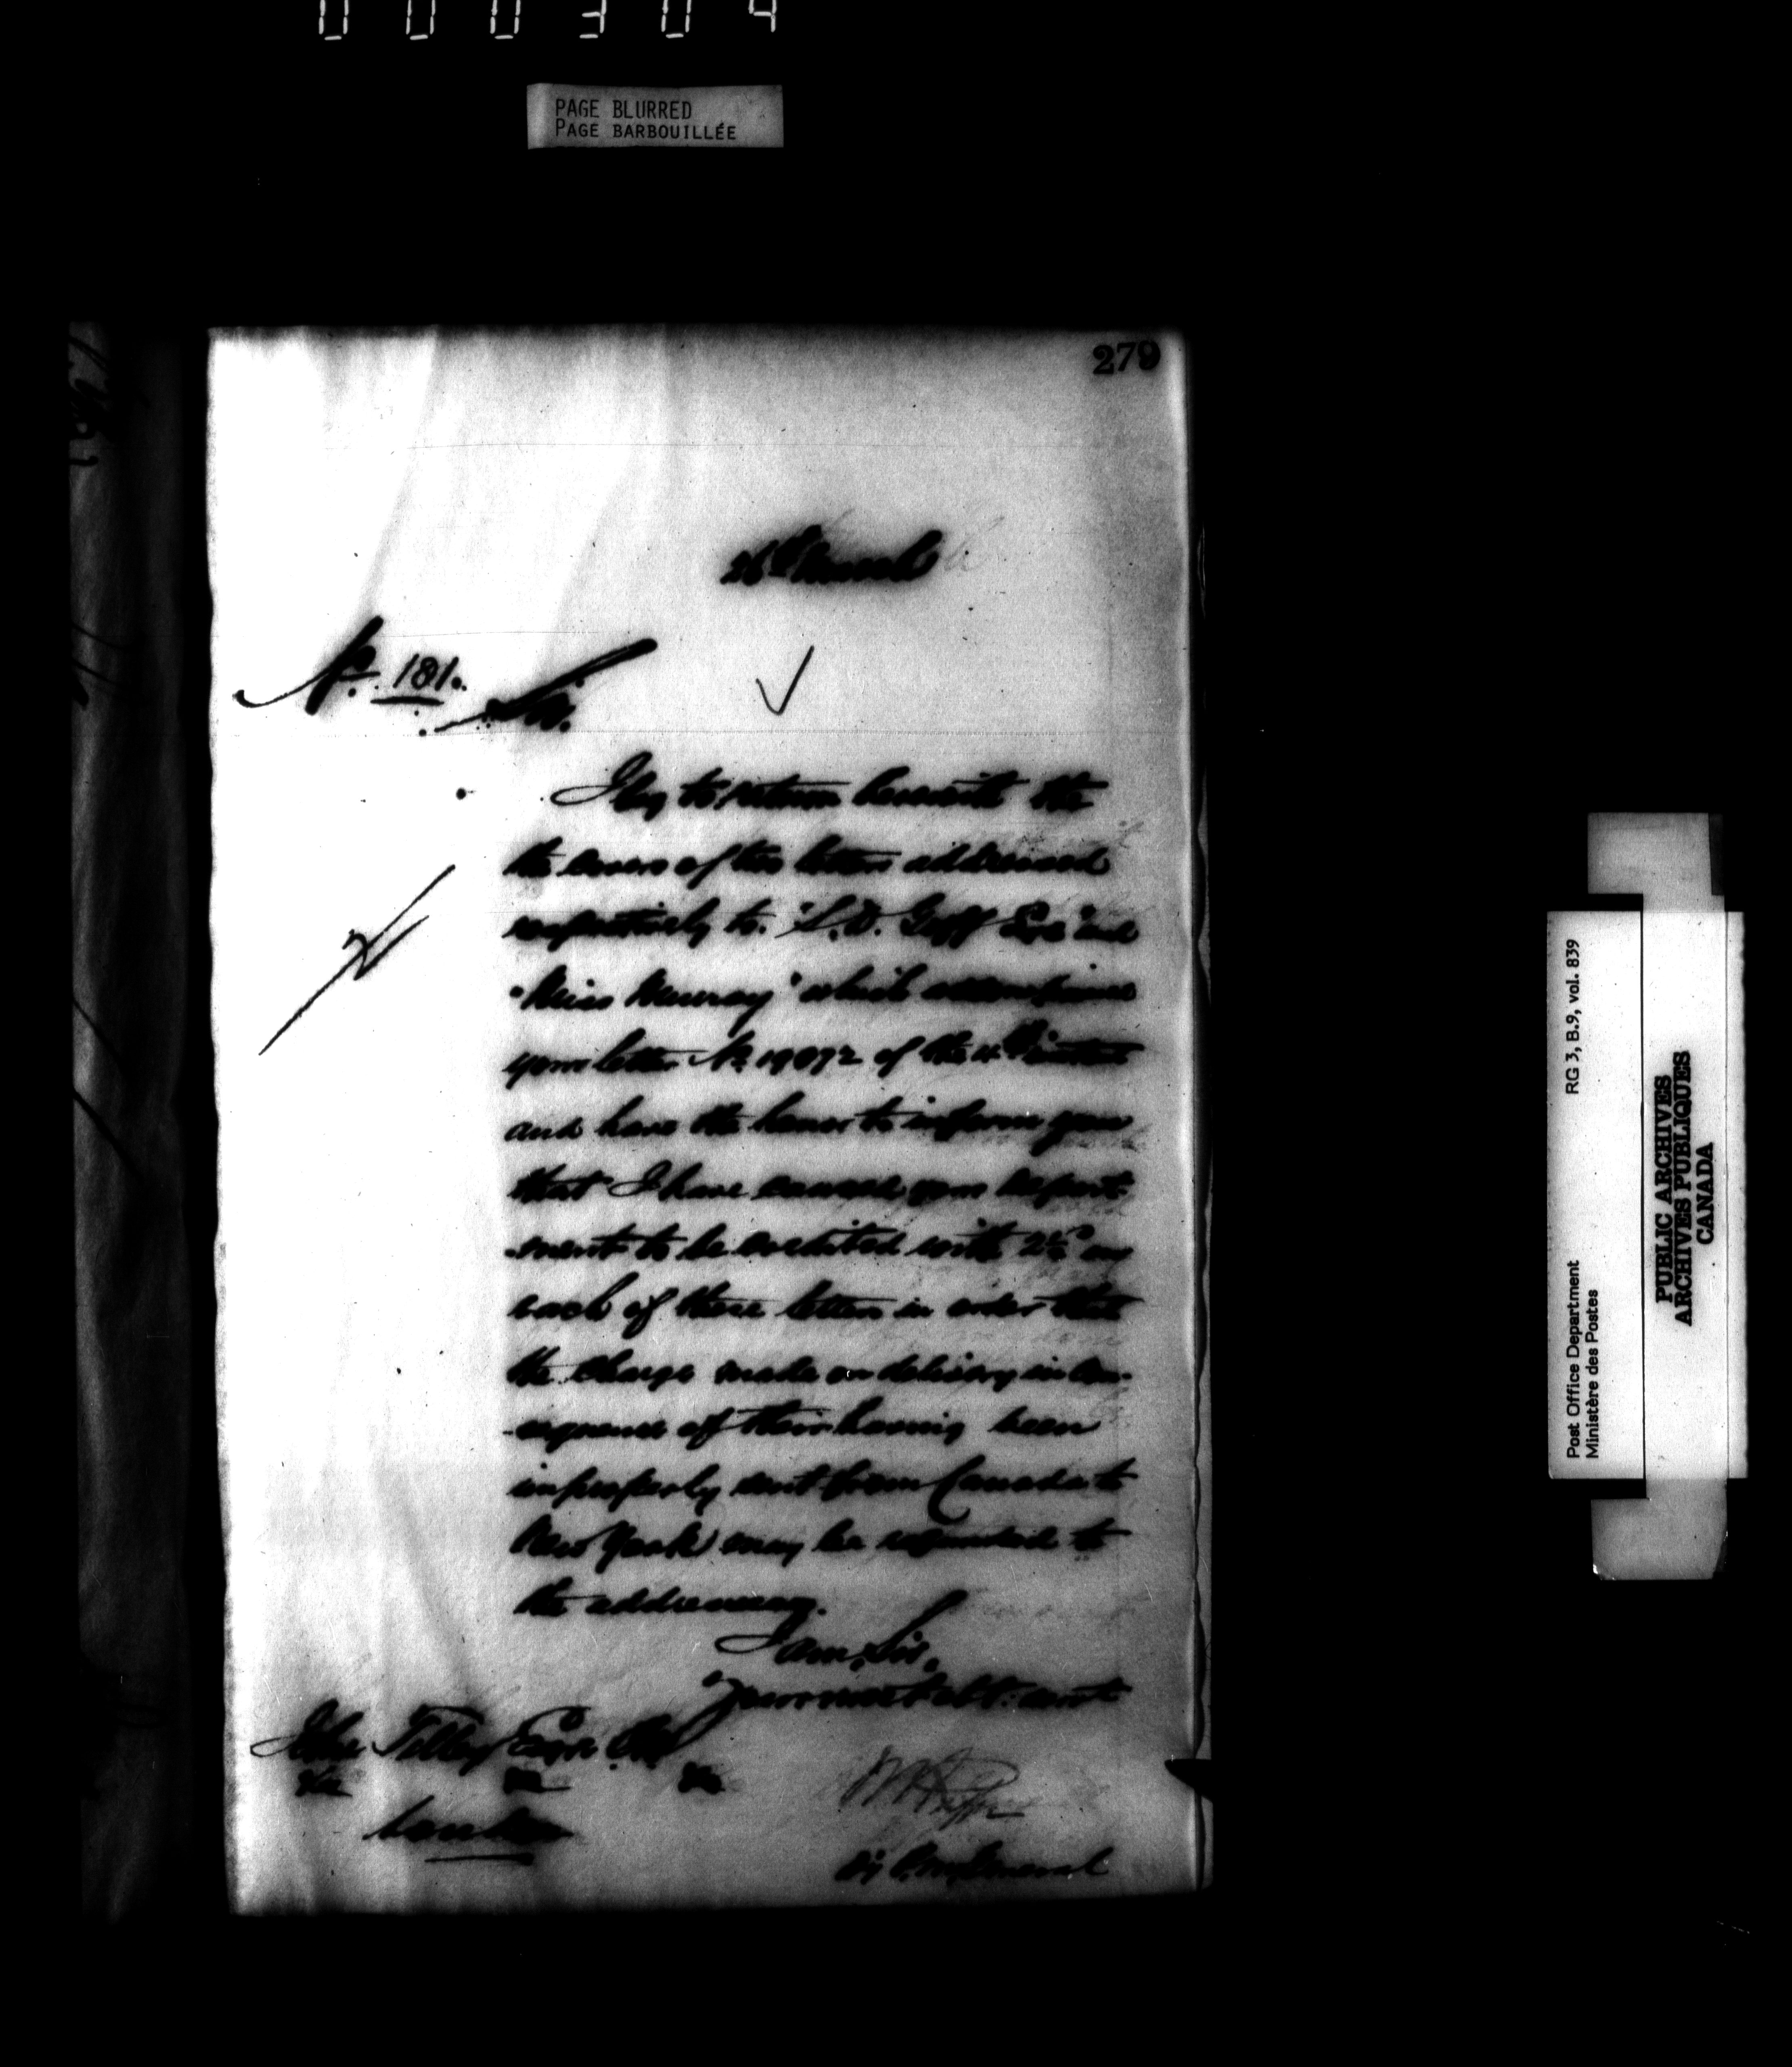 000304
PAGE BLURRED
PAGE BARBOUILLÉE
279
26th March
No. 181.
Sir.
I beg to return herewith the
the covers of two letters addressed
respectively to "S. D. Goff Esqre" and
"Miss Murray" which accompanied
your letter No. 19872 of the 4th instant
and have the honor to inform you
that I have caused your Depart-
-ment to be credited with on
each of these letters in order that
the charge made on delivery in con-
-sequence of their having been
improperly sent from Canada to
New York may be refunded to
the addressees.
I am, Sir,
Your most obt. servt
John Tilley Esqre C.B.
&c &c &c
London
Dy P. M. General
Post Office Department
Ministère des Postes
RG 3, B.9, vol. 839
PUBLIC ARCHIVES
ARCHIVES PUBLIQUES
CANADA